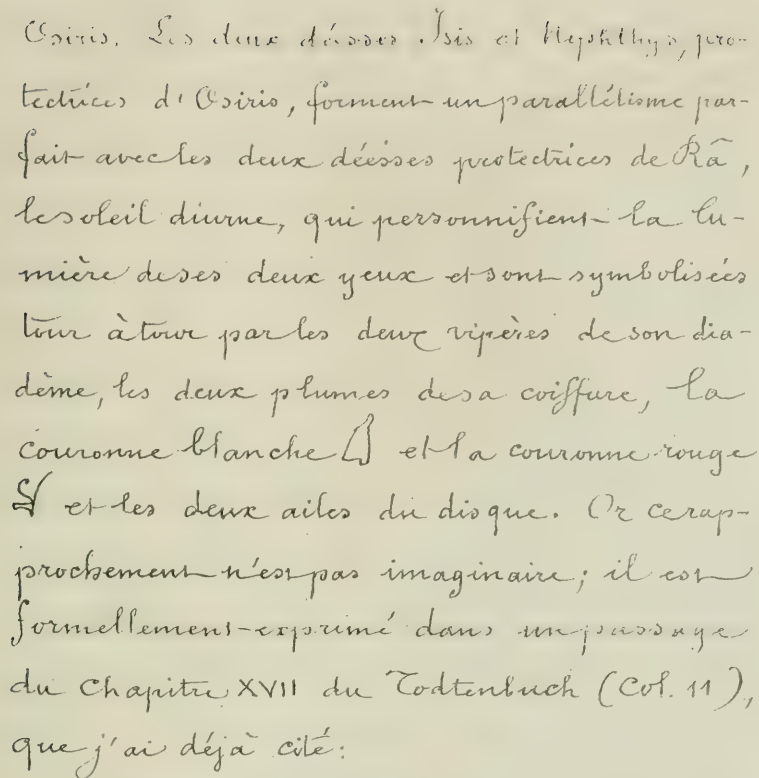 Osiris. Les deux déesses Isis et Nephthys, pro-
tectrices d'Osiris, forment un parallélisme par-
fait avec les deux déesses protectrices de Râ,
le soleil diurne, qui personnifient la lu-
mière de ses deux yeux et sont symbolisées
tour à tour par les deux vipères de son dia-
dème, les deux plumes de sa coiffure, la
couronne blanche et la couronne rouge
et les deux ailes du disque. Or ce rap-
prochement n'est pas imaginaire; il est
formellement exprimé dans un passage
du Chapitre XVII du Todtenbuch (Col. 11),
que j'ai déjà cité: